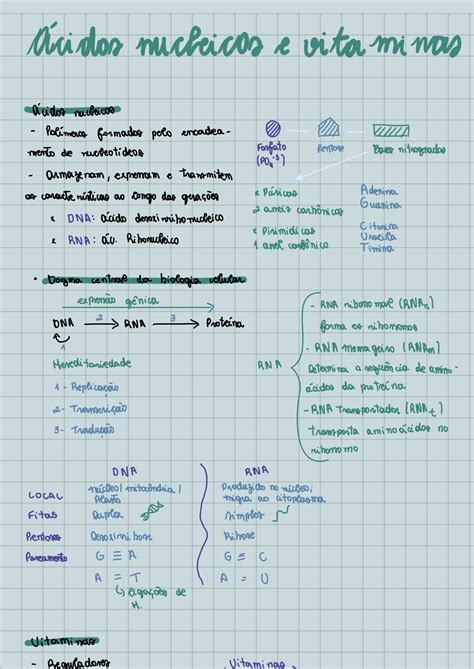 Ácidos nucleicos e vitaminas
Ácidos nucleicos
- Polímeros formados pelo encadea-
mento de nucleotídeos
- Armazenam, expressam e transmitem
as características ao longo das gerações
x DNA: ácido desoxirribonucleico
x RNA: ác. Ribonucleico
Fosfato
(PO4-3)
Pentose
Bases nitrogenadas
x Púricas
2 aneis carbônicos
Adenina
Guanina
x Pirimídicas
1 anel carbônico
Citosina
Uracila
Timina
• Dogma central da biologia celular
expressão gênica
DNA 2 RNA 3 Proteína
1
Hereditariedade
1- Replicação
2- Transcrição
3- Tradução
RNA
- RNA ribossomal (RNAr)
forma os ribossomos
- RNA mensageiro (RNAm)
Determina a sequência de amino-
ácidos da proteína
- RNA transportador (RNAt)
transporta aminoácidos no
ribossomo
DNA RNA
LOCAL núcleo/ mitocôndria/
Plasto
Produzido no núcleo;
migra ao citoplasma
Fitas Dupla Simples
Pentoses Desoxirribose Ribose
Pareamento G ≡ A G ≡ C
A = T A = U
ligações de
H.
Vitaminas
- Reguladores
Vitaminas